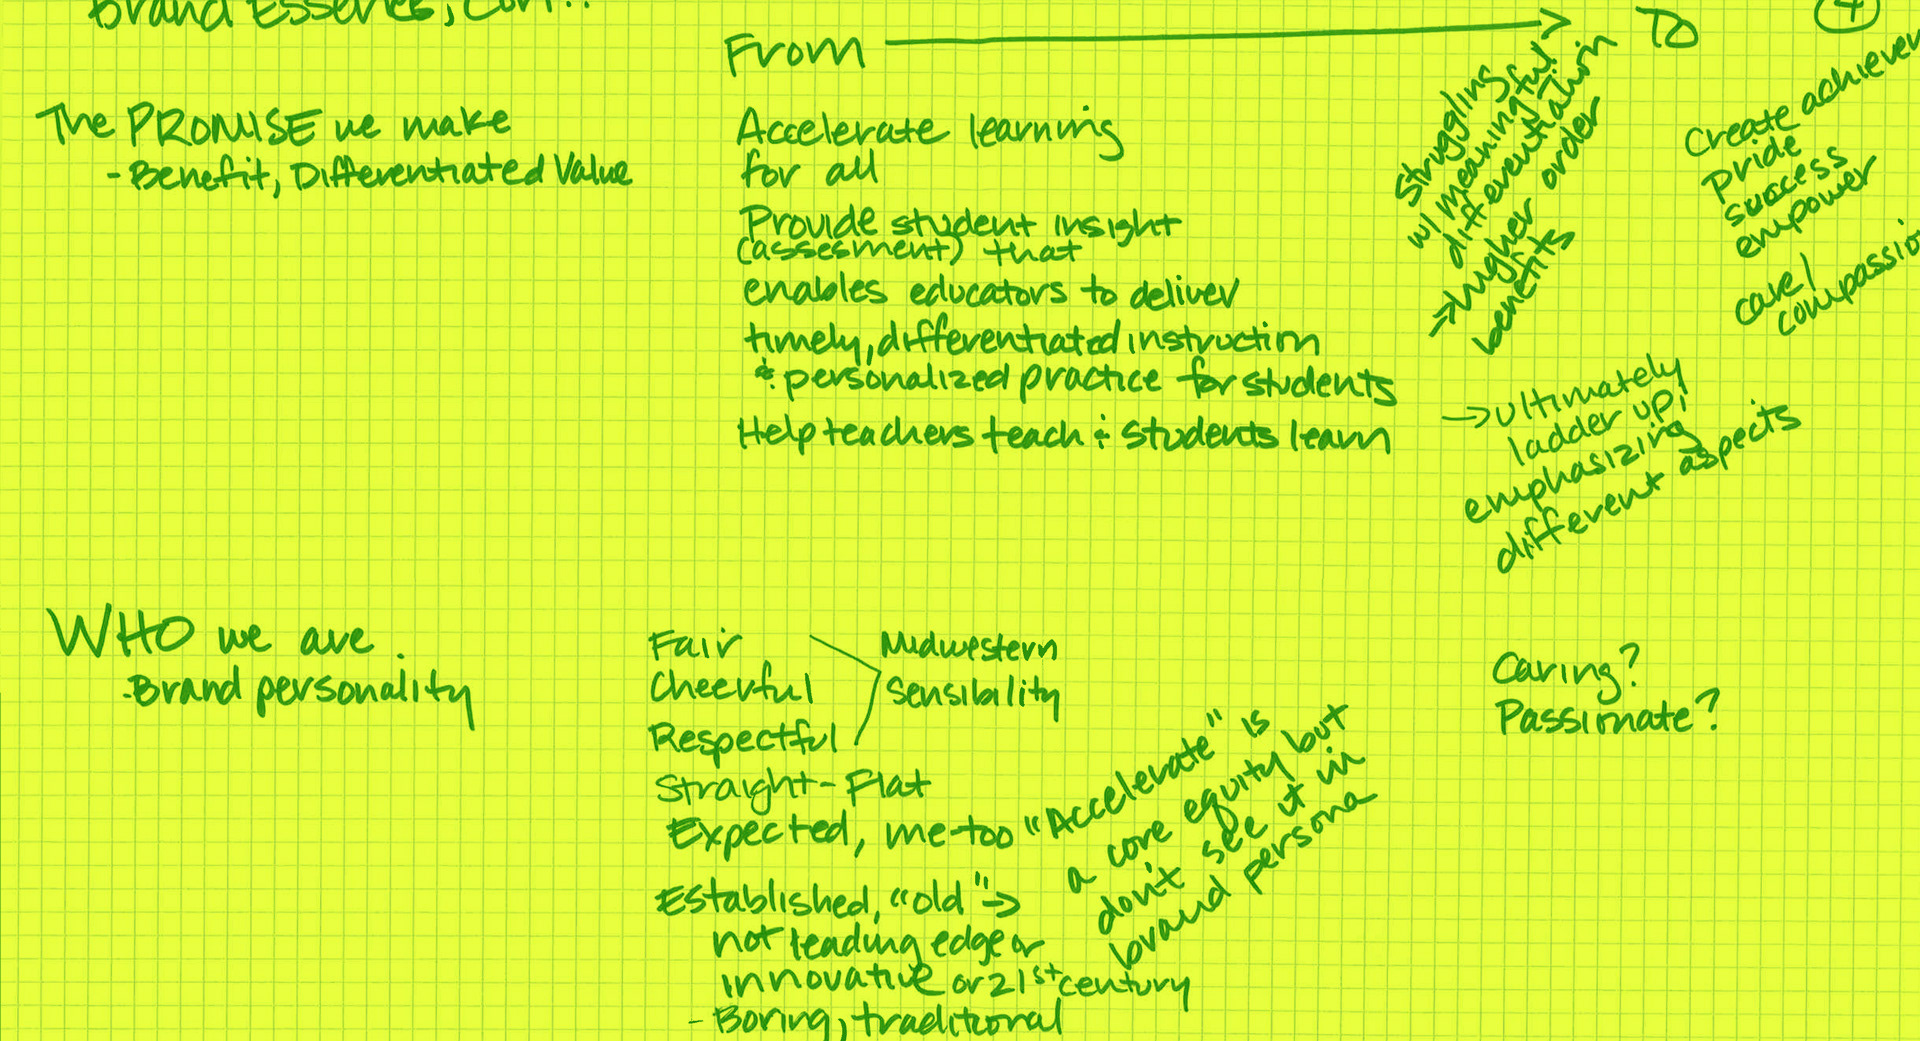 Brand Essence, Con't.
4
From → To
The PROMISE we make
- Benefit, Differentiated Value
Accelerate learning
for all
Provide student insight
(assesment) that
enables educators to deliver
timely, differentiated instruction
& personalized practice for students
Help teachers teach & students learn
struggling
w/ meaningful
differentiation
→ higher order
benefits
Create achievement
pride
success
empower
care/
compassion
→ ultimately
ladder up;
emphasizing
different aspects
WHO we are.
- Brand personality
Fair
Cheerful
Respectful
Midwestern
Sensibility
Straight-Flat
Expected, me-too
"Accelerate" is
a core equity but
don't see it in
brand persona
Established, "old" →
not leading edge or
innovative or 21st century
- Boring, traditional
Caring?
Passionate?